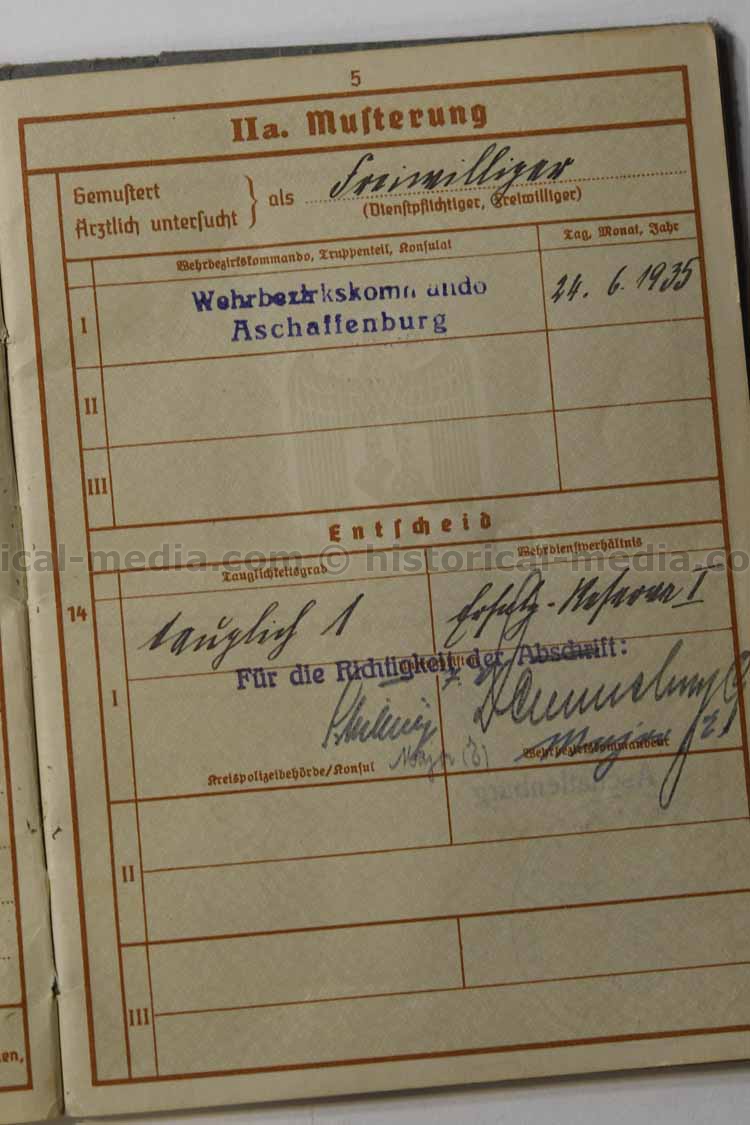 5
IIa. Musterung
Gemustert
Ärztlich untersucht } als Freiwilliger
(Dienstpflichtiger, Freiwilliger)
Wehrbezirkskommando, Truppenteil, Konsulat
Tag, Monat, Jahr
I
Wehrbezirkskommando
Aschaffenburg
24. 6. 1935
II
III
Entscheid
ical-media.com © historical-media.co
Tauglichkeitsgrad
Wehrdienstverhältnis
14
I
tauglich 1
Ersatz-Reserve I
Für die Richtigkeit der Abschrift:
Major (E)
Major
Kreispolizeibehörde/Konsul
Wehrbezirkskommandeur
Aschaffenburg
II
III
en,